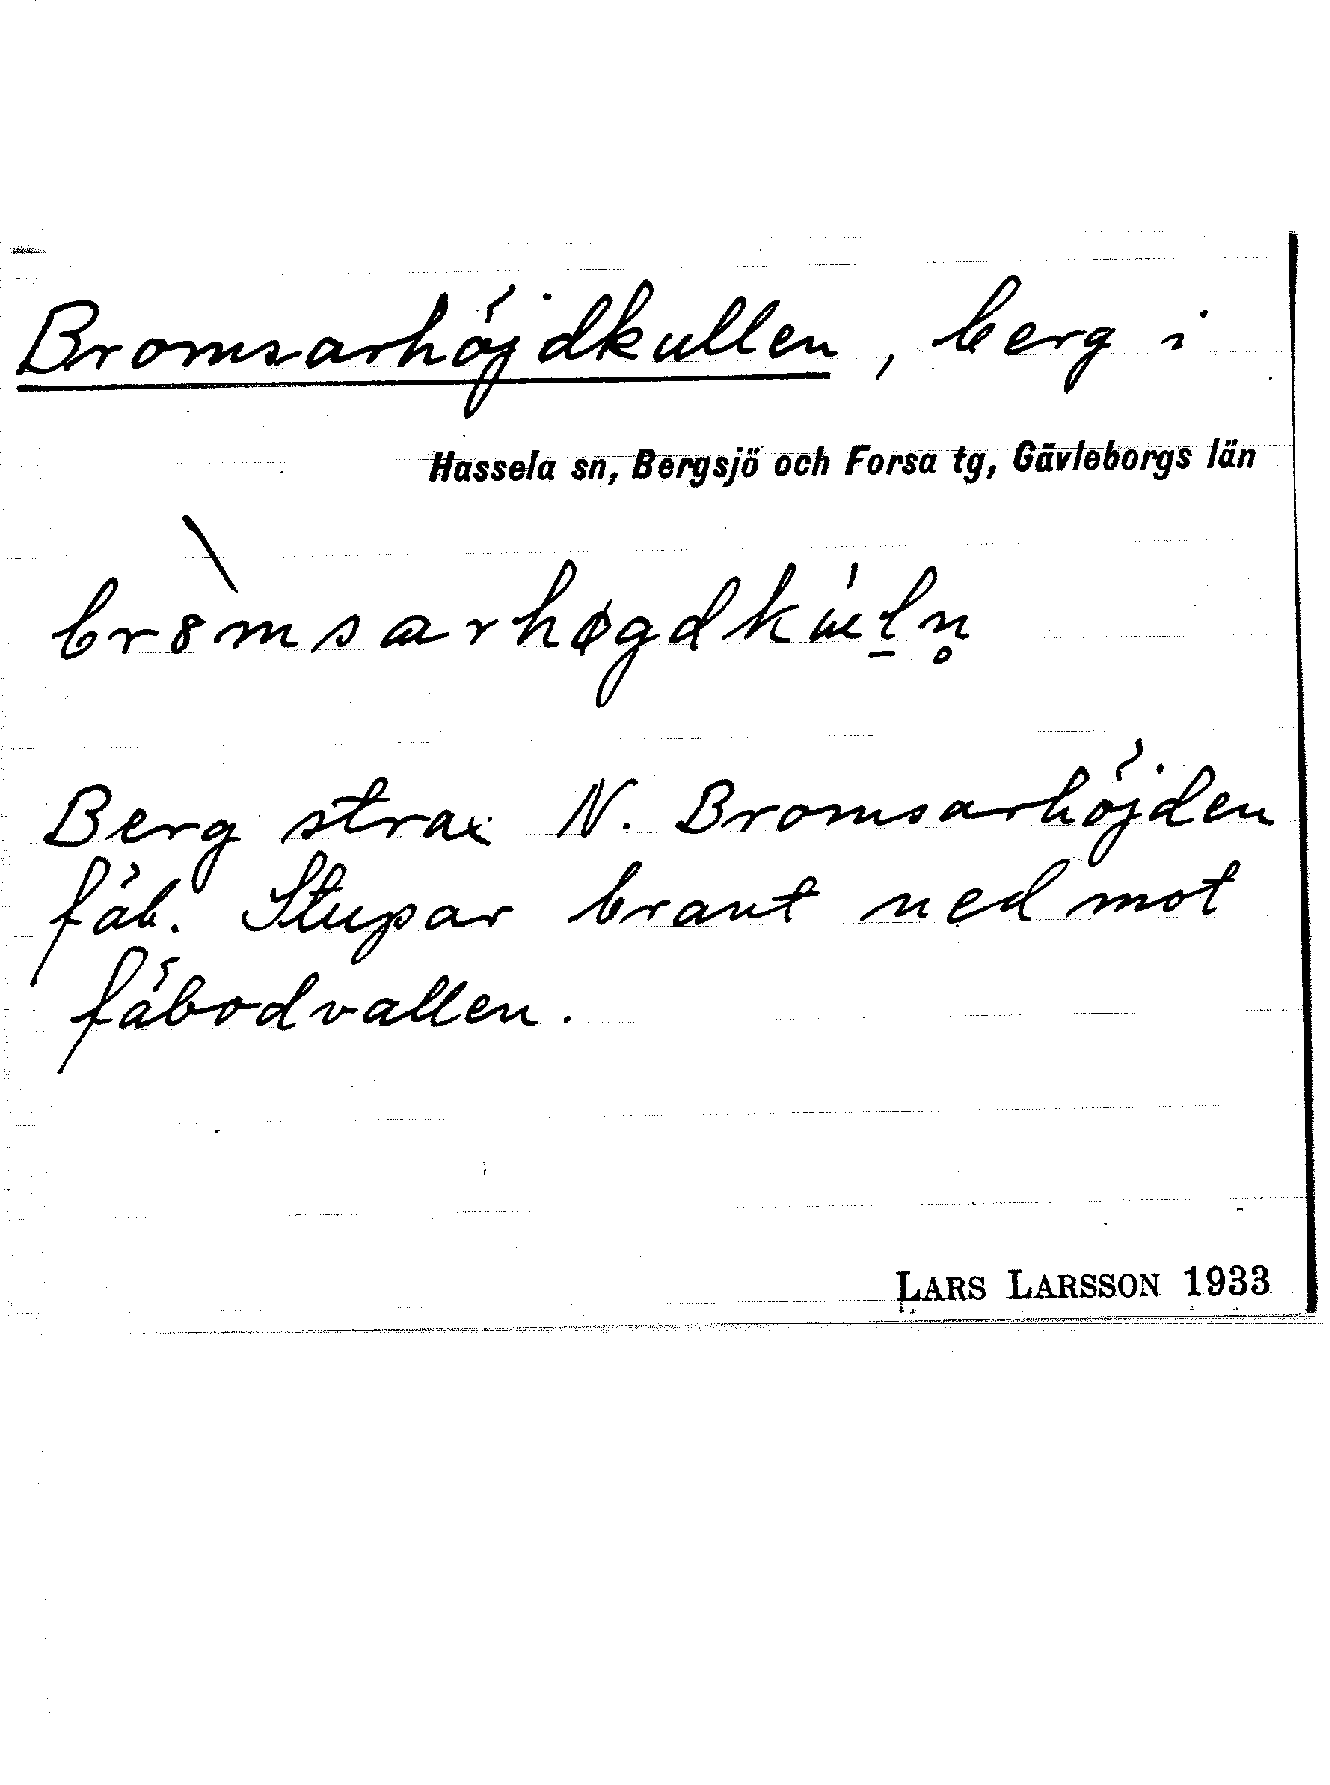 Bromsarhöjdkullen, berg i
Hassela sn, Bergsjö och Forsa tg, Gävleborgs län
br8̀msarhøgdkúl̠n̥
Berg strax N. Bromsarhöjden
fäb. Stupar brant ned mot
fäbodvallen.
LARS LARSSON 1933